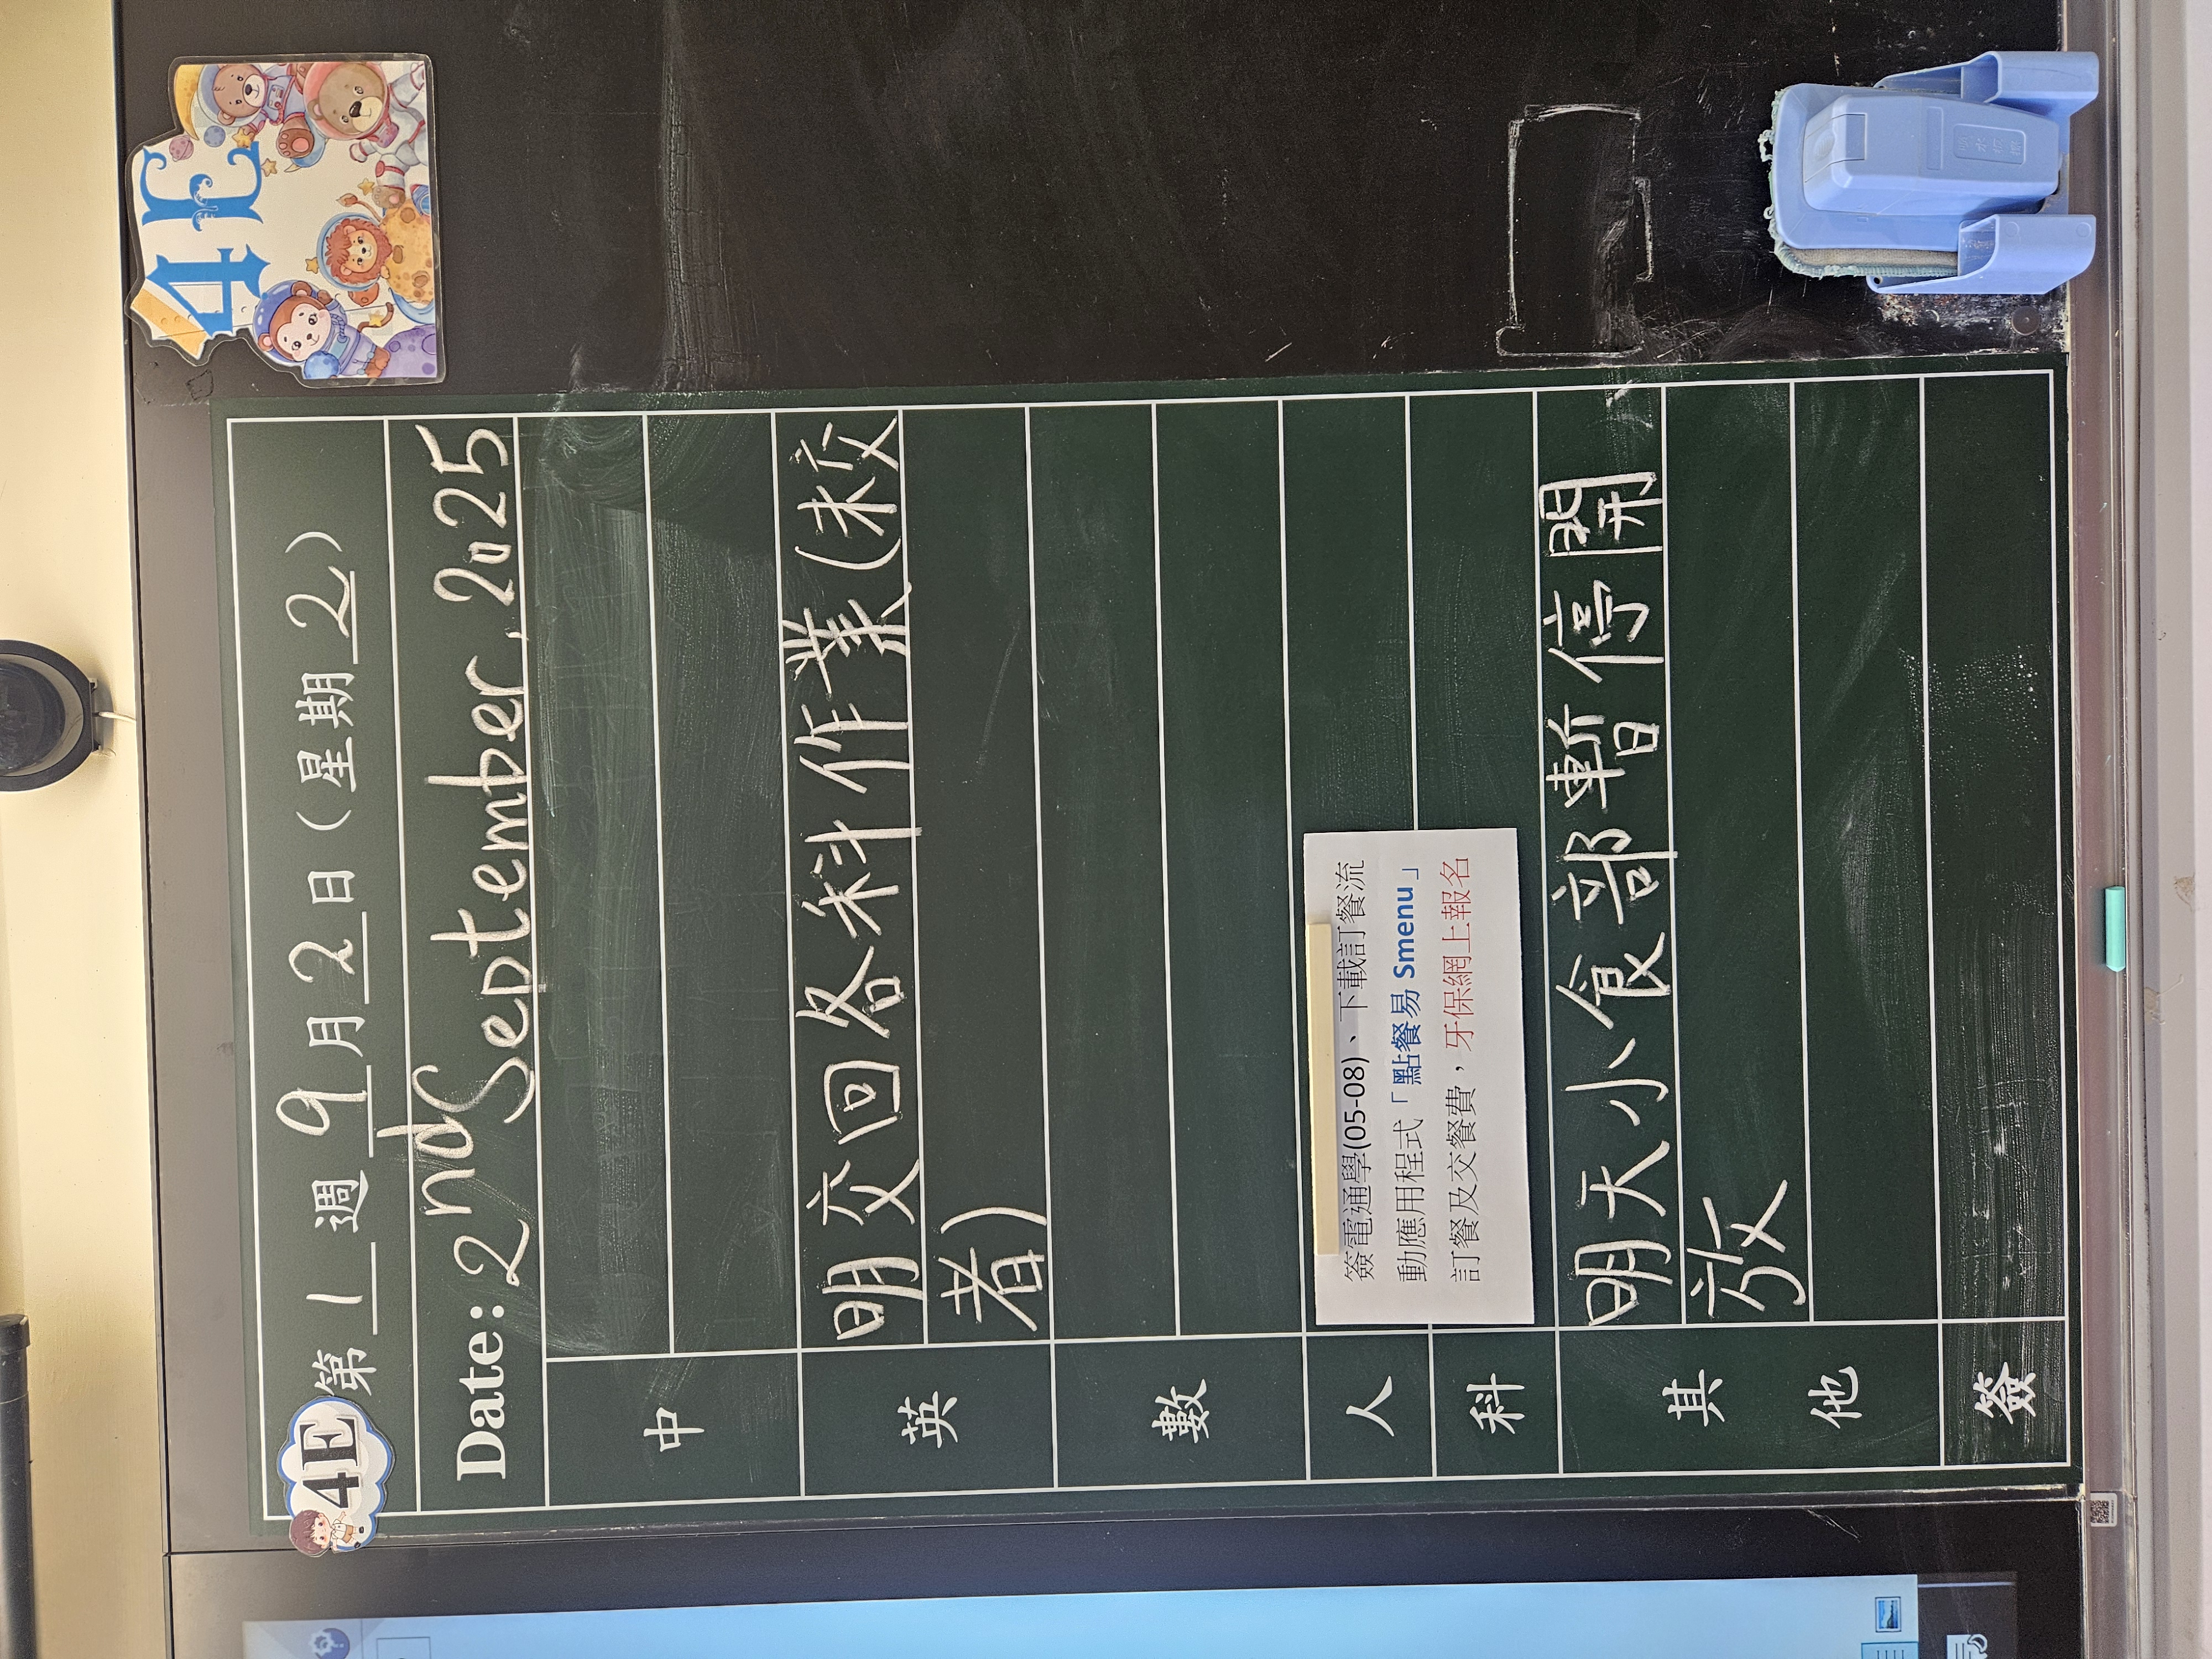 4E
4E
第 1 週 9 月 2 日 (星期 2)
Date: 2nd September, 2025
中
英
明交回各科作業(未交
者)
數
人
簽電通學(05-08)、下載訂餐流
動應用程式「點餐易 Smenu」
訂餐及交餐費，牙保網上報名
科
其
他
明天小食部暫停開
放
簽